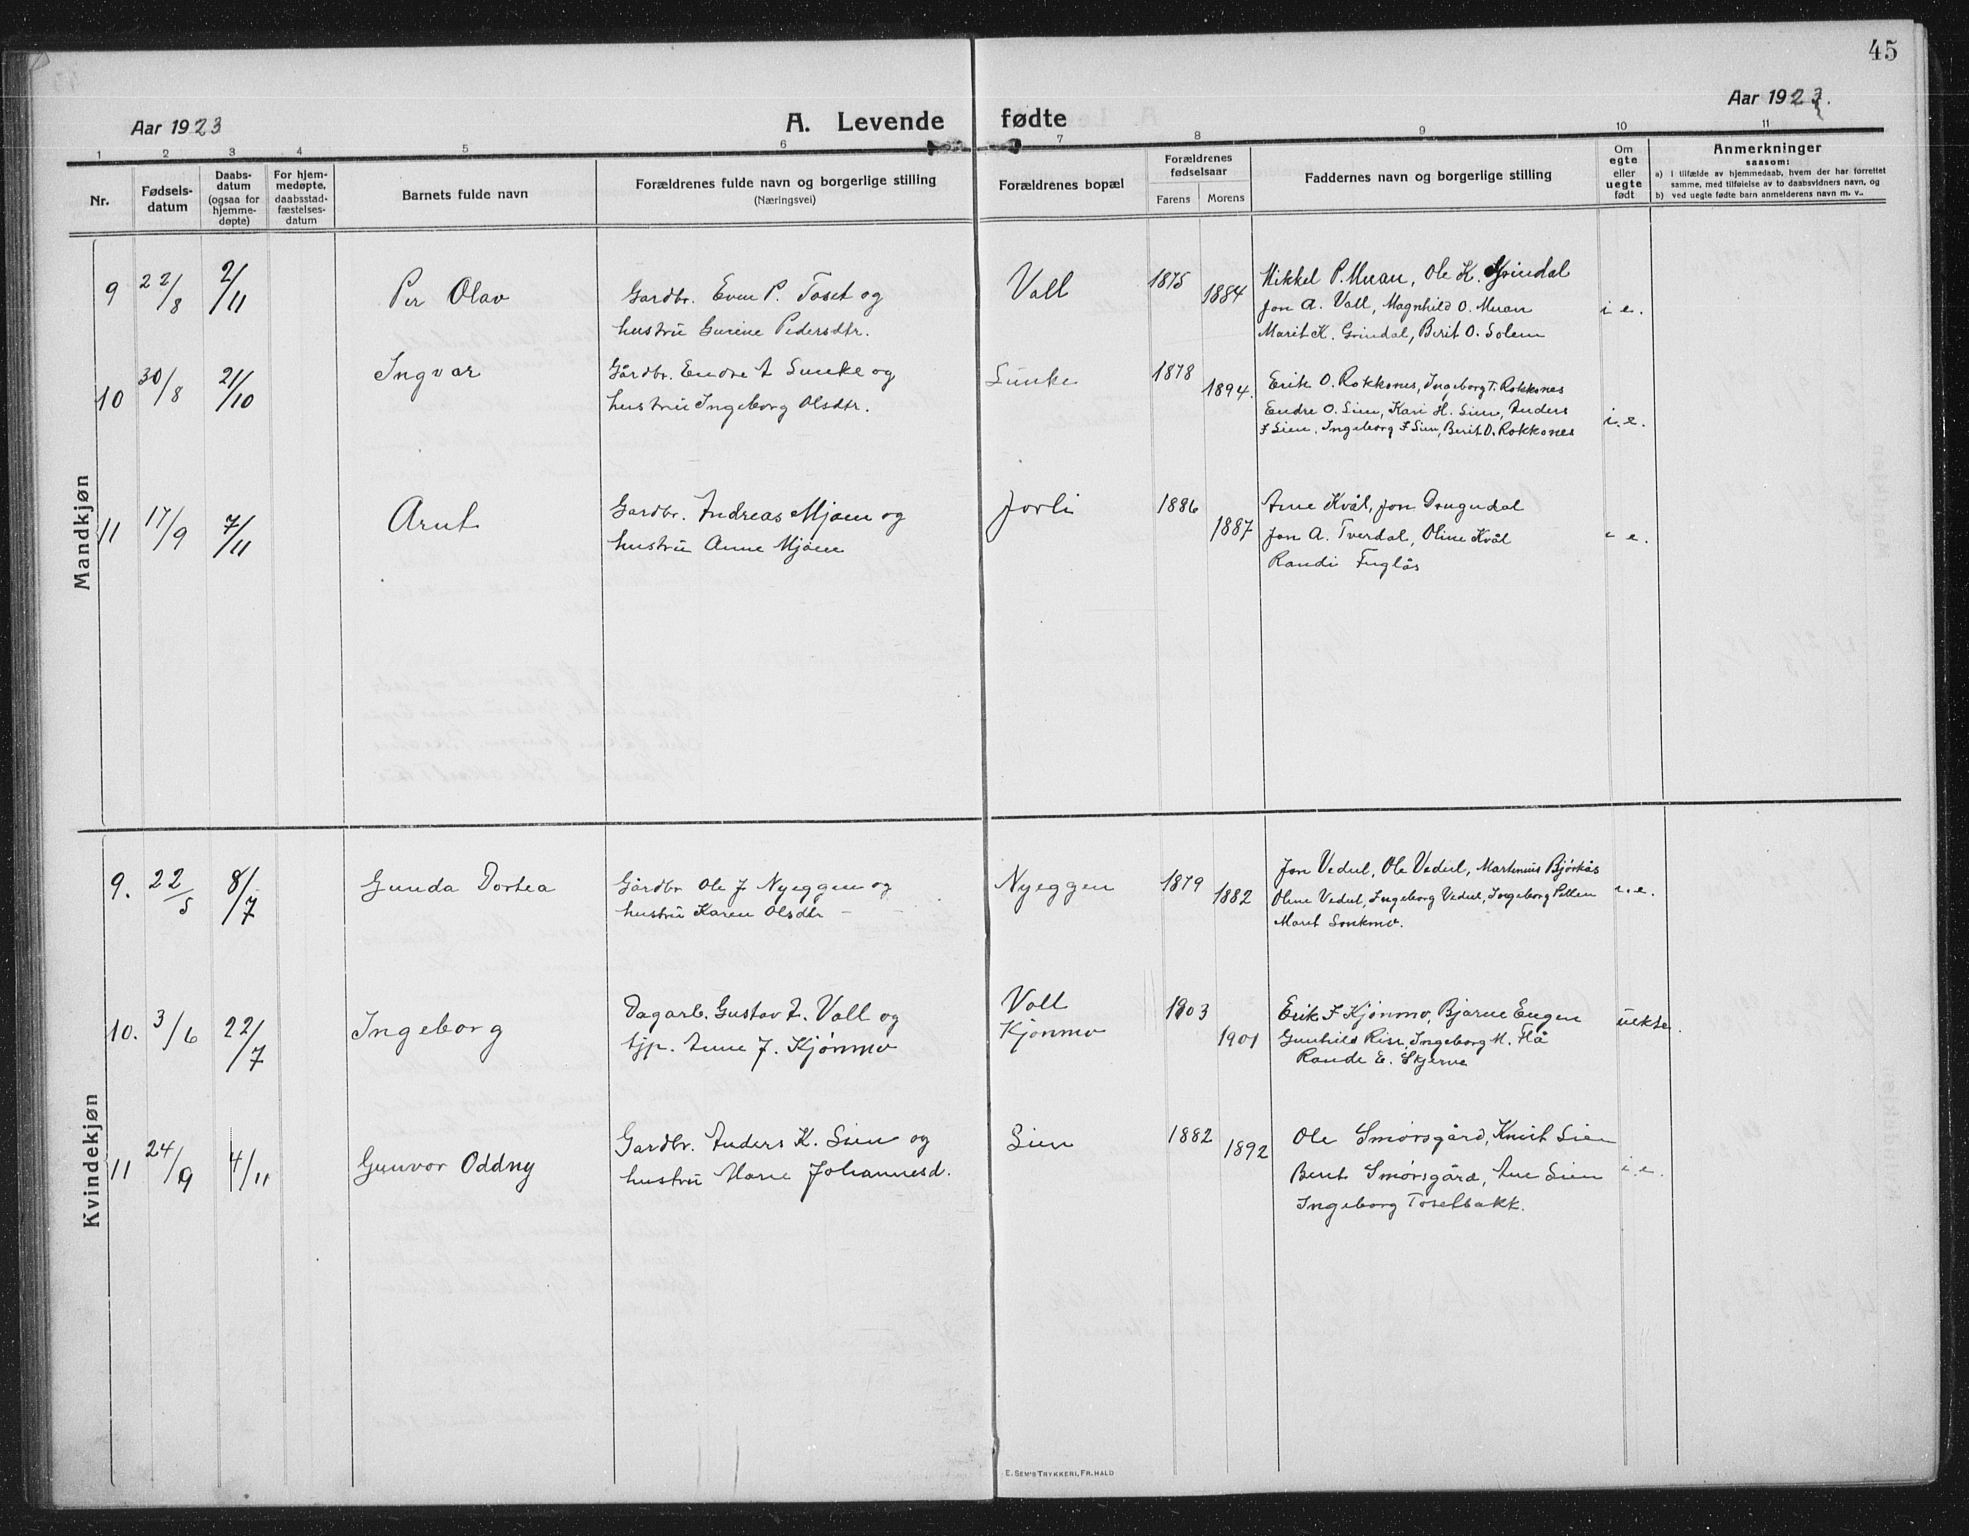 45
Aar 1923
A. Levende fødte
Aar 1923.
1 2 3 4 5 6 7 8 9 10 11
Nr.
Fødsels-
datum
Daabs-
datum
(ogsaa for
hjemme-
døpte)
For hjem-
medøpte,
daabsstad-
fæstelses-
datum
Barnets fulde navn
Forældrenes fulde navn og borgerlige stilling
(Næringsvei)
Forældrenes bopæl
Forældrenes
fødselsaar
Farens Morens
Faddernes navn og borgerlige stilling
Om
egte
eller
uegte
født
Anmerkninger
saasom:
a) I tilfælde av hjemmedaab, hvem der har forrettet
samme, med tilføielse av to daabsvidners navn, og
b) ved uegte fødte barn anmelderens navn m. v..
Mandkjøn
9 22/8 2/11 Per Olav
Gardbr. Even P. Toset og
hustru Gurine Pedersdtr.
Voll 1875 1884
Mikkel P. Muan, Ole K. Grindal
Jon A. Voll, Magnhild O. Muan
Marit K. Grindal, Berit O. Solem
i e.
10 30/8 21/10 Ingvar
Gårdbr. Endre A Lunke og
hustru Ingeborg Olsdtr.
Lunke 1878 1894.
Erik O. Rokkones, Ingeborg T. Rokkones
Endre O. Sien, Kari H. Sien, Anders
F Sien, Ingeborg F Sien, Berit O. Rokkones
i.e.
11 17/9 7/11 Arnt
Gardbr. Andreas Mjøen og
hustru Anne Mjøen
Jorli 1886 1887
Arne Kvål, Jon Drugudal
Jon A. Tverdal, Oline Kvål
Randi Fuglås
i e.
Kvindekjøn
9. 22/5 8/7 Gunda Dortea
Gårdbr Ole J Nyeggen og
hustru Karen Olsdtr
Nyeggen 1879 1882
Jon Vedul, Ole Vedul, Martinius Bjørkås
Oline Vedul, Ingeborg Vedul, Ingeborg Pellen
Marit Lonkmo.
i.e.
10. 3/6 22/7 Ingeborg
Dagarb. Gustav A. Voll og
tjp. Anne J. Kjønmo
Voll
Kjønmo
1903 1901
Erik F Kjønmo, Bjarne Eugen
Gunhild Rise, Ingeborg M. Flå
Rande E. Skjerve
uekte.
11 24/9 4/11 Gunvor Oddny
Gardbr. Anders K. Sien og
hustru Marie Johannesd.
Sien 1882 1892
Ole Smørsgård, Knut Sien
Berit Smørsgård, Ane Sien
Ingeborg Tosetbakk.
i.e.
E. SEM'S TRYKKERI, FR.HALD